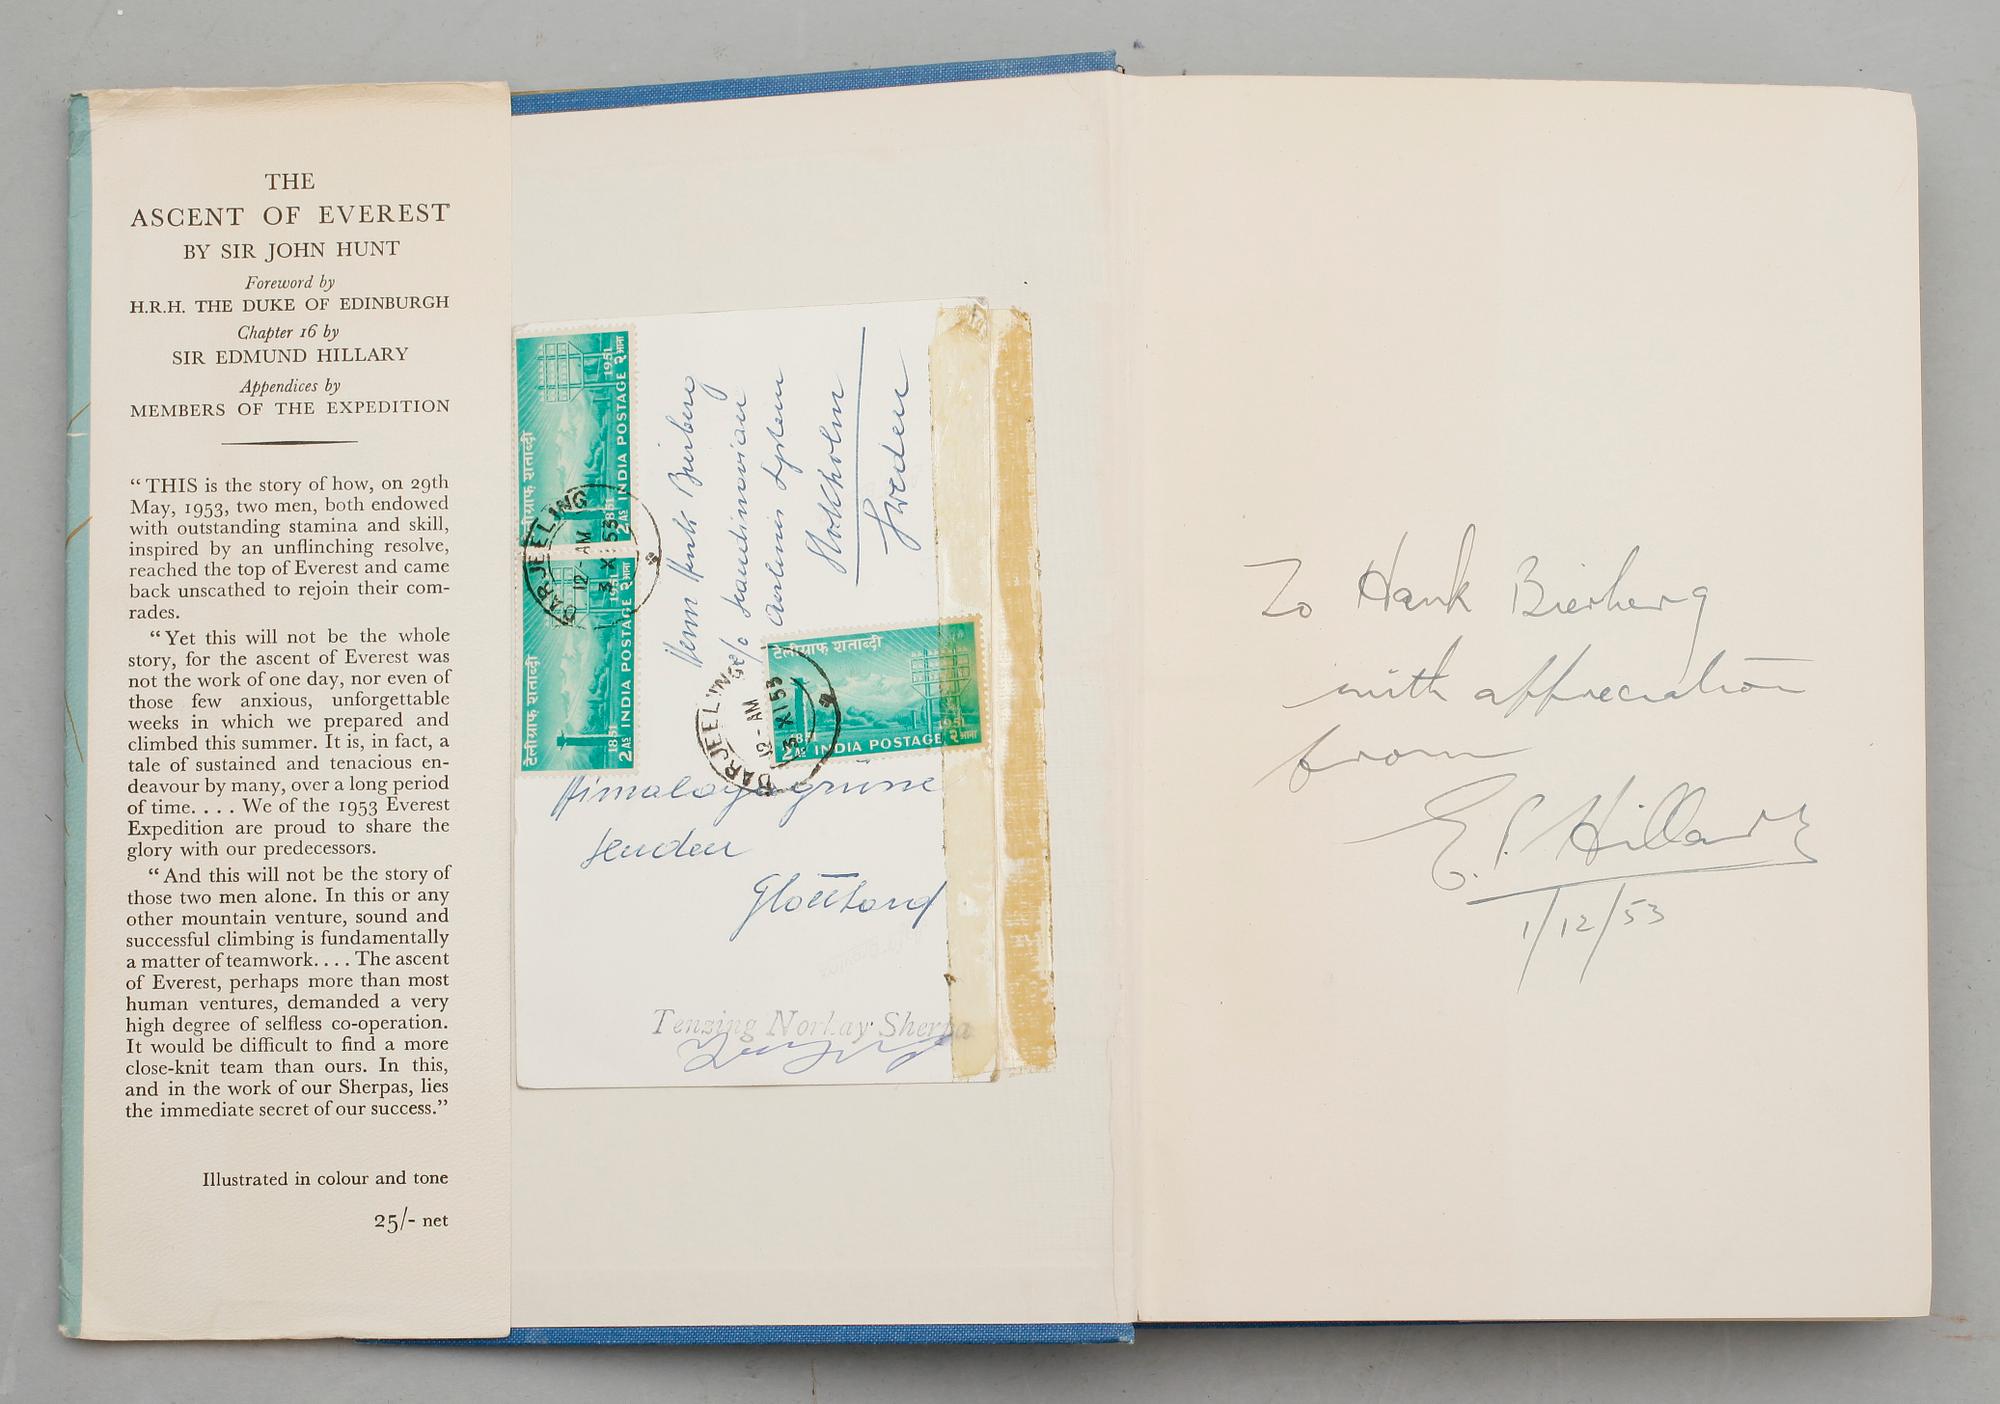 THE
ASCENT OF EVEREST
BY SIR JOHN HUNT
Foreword by
H.R.H. THE DUKE OF EDINBURGH
Chapter 16 by
SIR EDMUND HILLARY
Appendices by
MEMBERS OF THE EXPEDITION
“THIS is the story of how, on 29th
May, 1953, two men, both endowed
with outstanding stamina and skill,
inspired by an unflinching resolve,
reached the top of Everest and came
back unscathed to rejoin their com-
rades.
“Yet this will not be the whole
story, for the ascent of Everest was
not the work of one day, nor even of
those few anxious, unforgettable
weeks in which we prepared and
climbed this summer. It is, in fact, a
tale of sustained and tenacious en-
deavour by many, over a long period
of time. . . . We of the 1953 Everest
Expedition are proud to share the
glory with our predecessors.
“And this will not be the story of
those two men alone. In this or any
other mountain venture, sound and
successful climbing is fundamentally
a matter of teamwork. . . . The ascent
of Everest, perhaps more than most
human ventures, demanded a very
high degree of selfless co-operation.
It would be difficult to find a more
close-knit team than ours. In this,
and in the work of our Sherpas, lies
the immediate secret of our success.”
Illustrated in colour and tone
25/- net
टेलीग्राफ शताब्दी
1851 1951
2 AS INDIA POSTAGE २ आना
टेलीग्राफ शताब्दी
1851 1951
2 AS INDIA POSTAGE २ आना
DARJEELING
12-AM
3 XI 53
Herrn Henk Bierberg
c/o Scandinavian
Airlines System
Stokholm
Sweden
टेलीग्राफ शताब्दी
1851 1951
2 AS INDIA POSTAGE २ आना
DARJEELING
12-AM
3 XI 53
Himalayagrüsse
senden
Tenzing Norkay Sherpa
To Hank Bierberg
with appreciation
from
E.P. Hillary
1/12/53